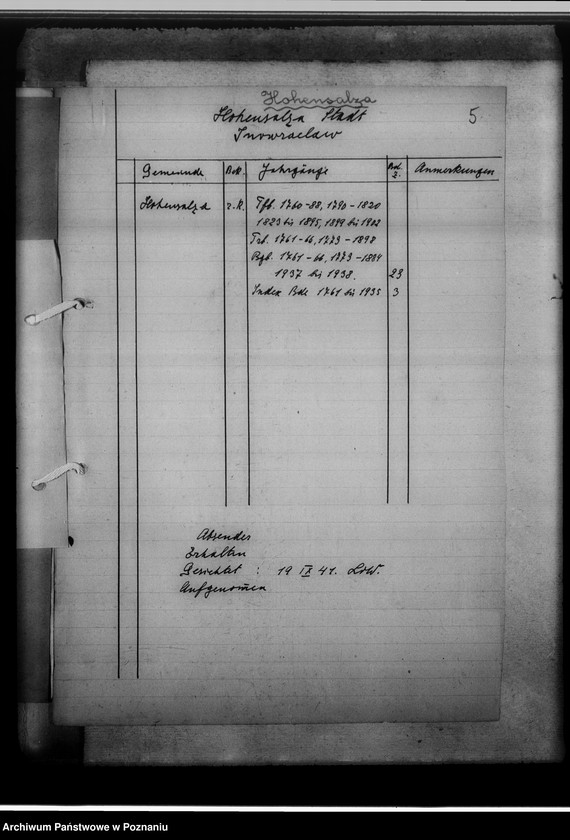 Hohensalza
Hohensalza Stadt 5
Inowraclaw
Gemeinde Bek. Jahrgänge Bd. Z. Anmerkungen
Hohensalza r.k. Tfb. 1760-88, 1790-1820
1823 bis 1895, 1899 bis 1902
Trb. 1761-66, 1773-1898
Bgb. 1761-66, 1773-1884
1937 bis 1938. 23
Index Bde 1761 bis 1935 3
Absender
Erhalten
Gesichtet : 19 IX 41. LöW.
Aufgenom̄en
Archiwum Państwowe w Poznaniu